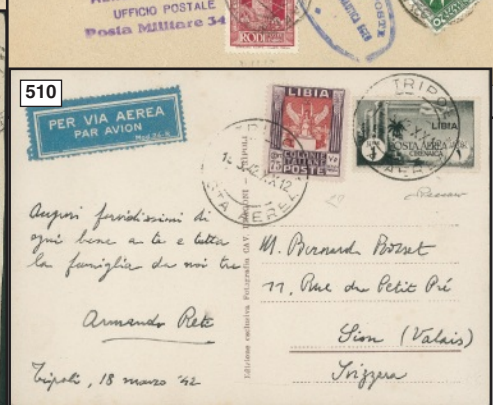 UFFICIO POSTALE
Posta Militare 34
RODI
POSTE
510
PER VIA AEREA
PAR AVION
LIBIA
COLONIE
ITALIANE
POSTE
TRIPOLI
LIBIA
POSTA AEREA
CIRENAICA
POSTA AEREA
Auguri fervidissimi di
ogni bene a te e tutta
la famiglia da noi tre
Armando Rete
Tripoli, 18 marzo '42
Edizione esclusiva Fotografia CAV.
M. Bernard Bosset
11, Rue du Petit Pré
Sion (Valais)
Svizzera